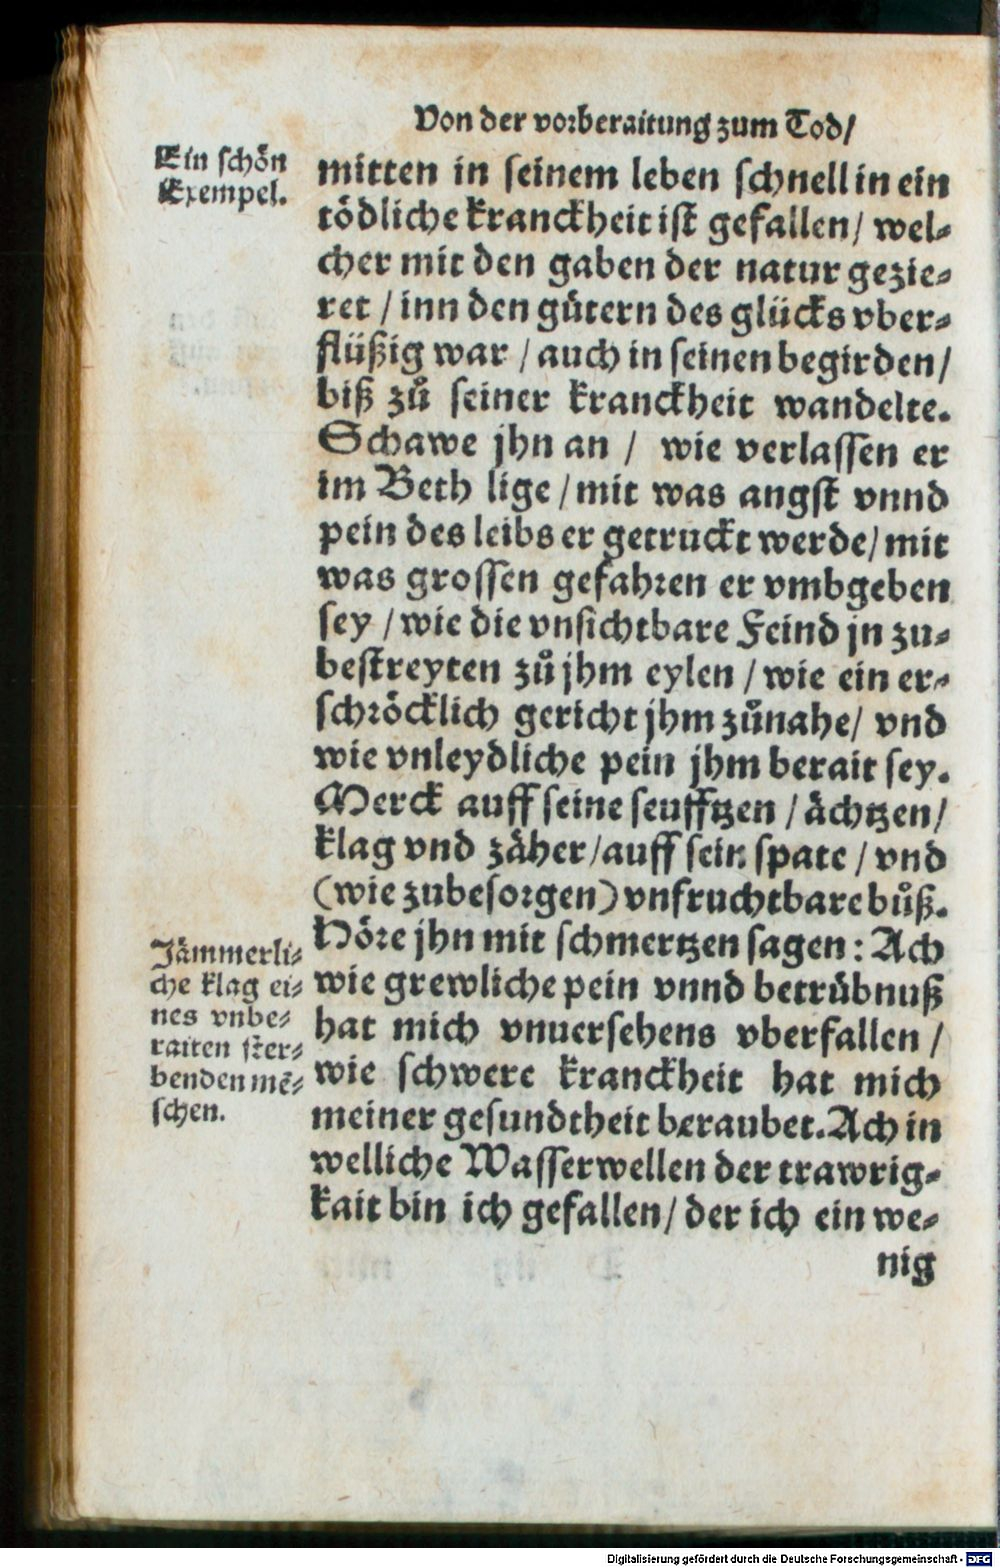 Von der vorberaitung zum Tod/
Ein schön
Exempel.
mitten in seinem leben schnell in ein
tödliche kranckheit ist gefallen/ wel⸗
cher mit den gaben der natur gezie⸗
ret / inn den gütern des glücks vber⸗
flüßig war / auch in seinen begirden/
biß zů seiner kranckheit wandelte.
Schawe jhn an / wie verlassen er
im Beth lige / mit was angst vnnd
pein des leibs er getruckt werde/ mit
was grossen gefahren er vmbgeben
sey / wie die vnsichtbare Feind jn zu⸗
bestreyten zů jhm eylen / wie ein er⸗
schröcklich gericht jhm zůnahe/ vnd
wie vnleydliche pein jhm berait sey.
Merck auff seine seufftzen / ächtzen/
klag vnd zäher/auff sein spate / vnd
(wie zubesorgen) vnfruchtbare bůß.
Höre jhn mit schmertzen sagen: Ach
wie grewliche pein vnnd betrübnuß
hat mich vnuersehens vberfallen /
wie schwere kranckheit hat mich
meiner gesundtheit beraubet. Ach in
welliche Wasserwellen der trawrig⸗
kait bin ich gefallen/ der ich ein we⸗
nig
Jämmerli⸗
che klag ei⸗
nes vnbe⸗
raiten ster⸗
benden mē⸗
schen.
Digitalisierung gefördert durch die Deutsche Forschungsgemeinschaft - DFG